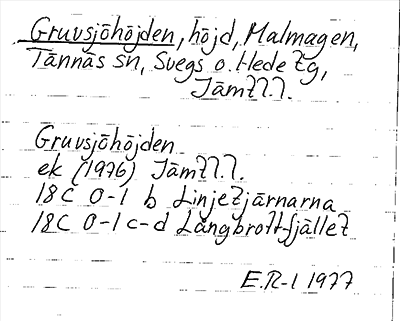 Gruvsjöhöjden, höjd, Malmagen,
Tännäs sn, Svegs o. Hede tg,
Jämtl.l.
Gruvsjöhöjden
ek (1976) Jämtl.l.
18C 0-1 b Linjetjärnarna
18C 0-1 c-d Långbrottfjället
E.R-l 1977